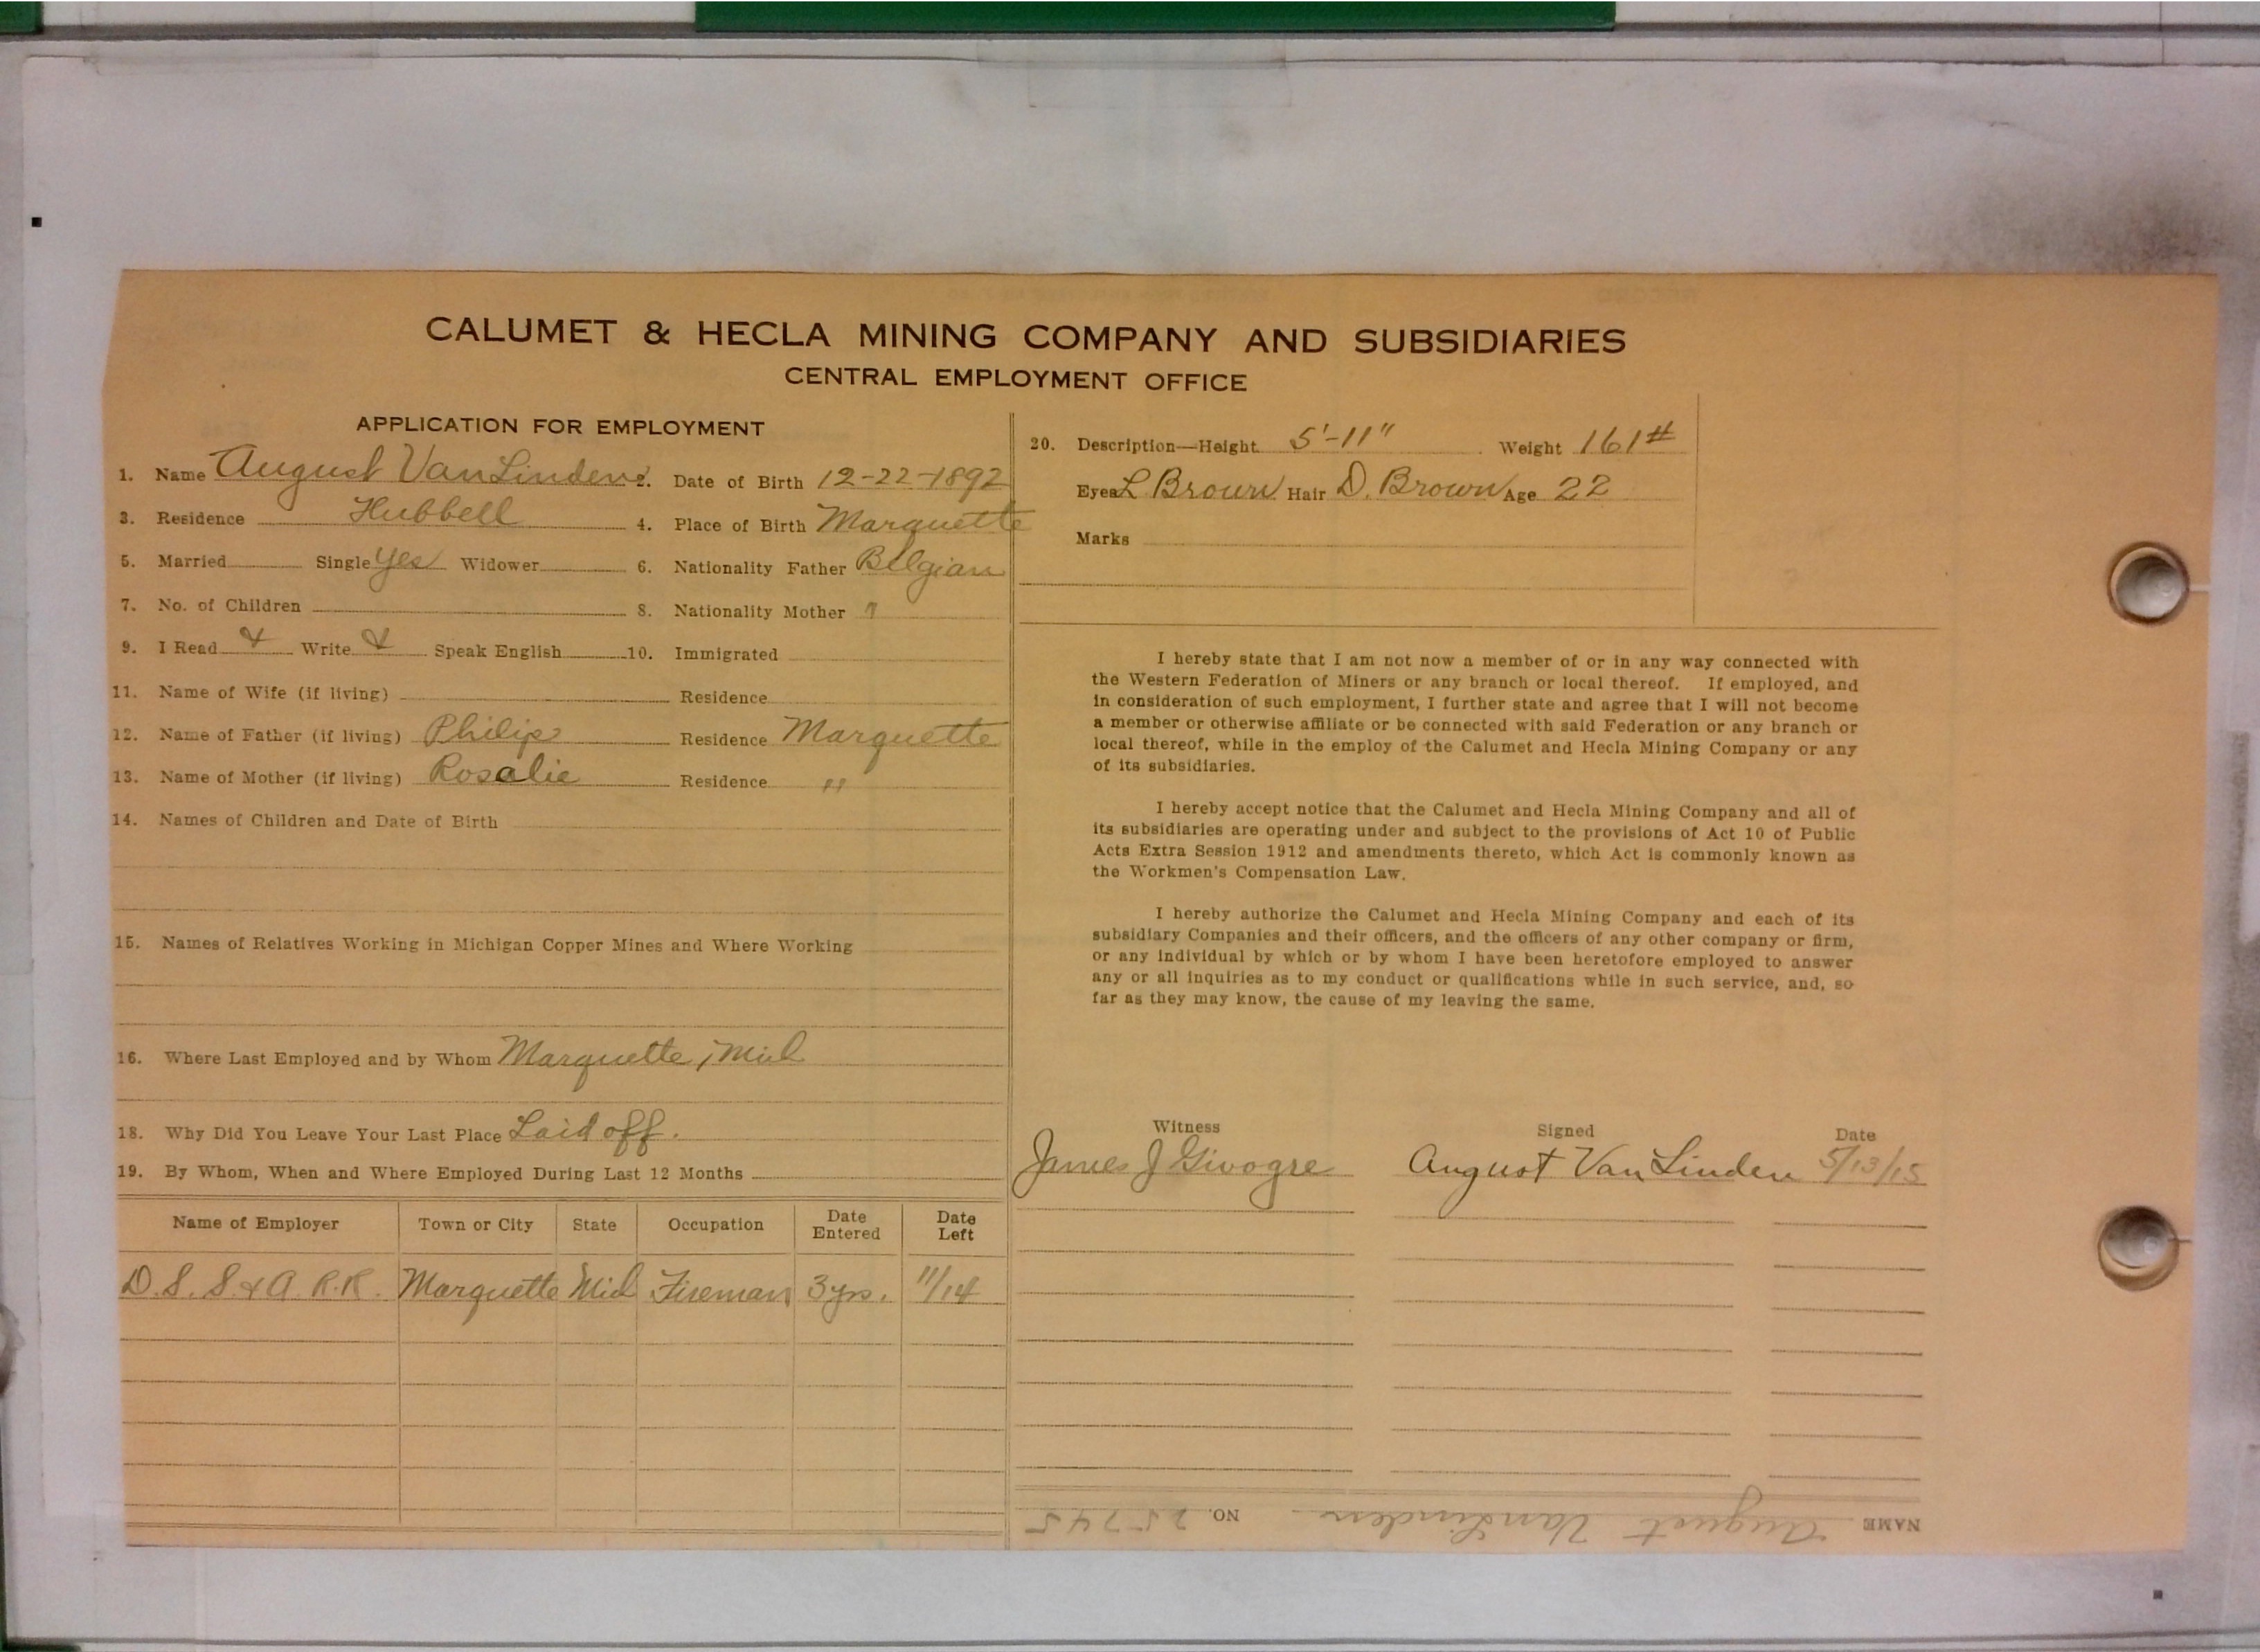 CALUMET & HECLA MINING COMPANY AND SUBSIDIARIES
CENTRAL EMPLOYMENT OFFICE
APPLICATION FOR EMPLOYMENT
1. Name August Van Linden 2. Date of Birth 12-22-1892
3. Residence Hubbell 4. Place of Birth Marquette
5. Married Single Yes Widower 6. Nationality Father Belgian
7. No. of Children 8. Nationality Mother "
9. I Read & Write & Speak English 10. Immigrated
11. Name of Wife (if living) Residence
12. Name of Father (if living) Philip Residence Marquette
13. Name of Mother (if living) Rosalie Residence "
14. Names of Children and Date of Birth
15. Names of Relatives Working in Michigan Copper Mines and Where Working
16. Where Last Employed and by Whom Marquette, Mich
18. Why Did You Leave Your Last Place Laid off.
19. By Whom, When and Where Employed During Last 12 Months
Name of Employer Town or City State Occupation Date Entered Date Left
D. S. S. & A. R.R. Marquette Mich Fireman 3 yrs. 11/14
20. Description—Height 5'-11" Weight 161#
Eyes L Brown Hair D. Brown Age 22
Marks
I hereby state that I am not now a member of or in any way connected with
the Western Federation of Miners or any branch or local thereof. If employed, and
in consideration of such employment, I further state and agree that I will not become
a member or otherwise affiliate or be connected with said Federation or any branch or
local thereof, while in the employ of the Calumet and Hecla Mining Company or any
of its subsidiaries.
I hereby accept notice that the Calumet and Hecla Mining Company and all of
its subsidiaries are operating under and subject to the provisions of Act 10 of Public
Acts Extra Session 1912 and amendments thereto, which Act is commonly known as
the Workmen's Compensation Law.
I hereby authorize the Calumet and Hecla Mining Company and each of its
subsidiary Companies and their officers, and the officers of any other company or firm,
or any individual by which or by whom I have been heretofore employed to answer
any or all inquiries as to my conduct or qualifications while in such service, and, so
far as they may know, the cause of my leaving the same.
Witness Signed Date
James J August Van Linden 5/13/15
NAME August Van Linden NO. 25745